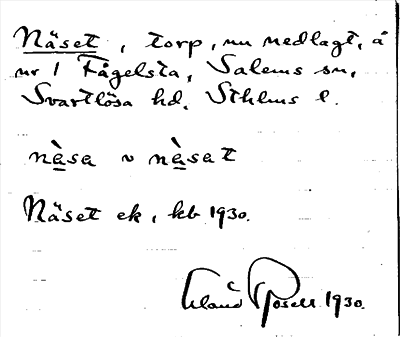 Näset, torp, nu nedlagt, å
nr 1 Fågelsta, Salems sn,
Svartlösa hd. Sthlms l.
nà̱sa ~ nà̱sat
Näset ek, kb 1930.
Erland Rosell 1930.